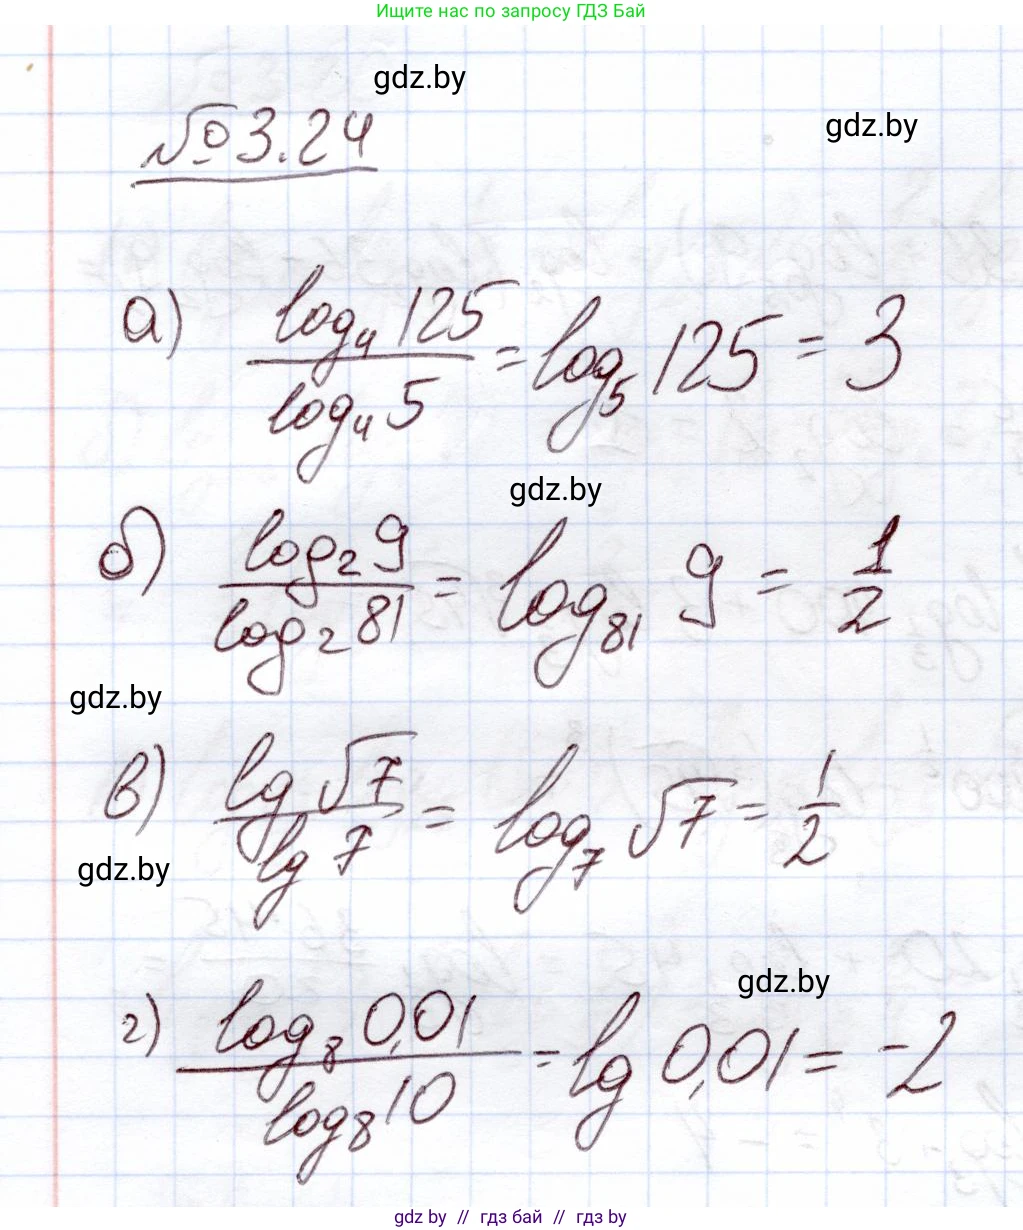 Ищите нас по запросу ГДЗ Бай
gdz.by
gdz.by
№ 3.24
а) log₄ 125 / log₄ 5 = log₅ 125 = 3
gdz.by
б) log₂ 9 / log₂ 81 = log₈₁ 9 = 1/2
gdz.by
в) lg √7 / lg 7 = log₇ √7 = 1/2
gdz.by
gdz.by
г) log₈ 0,01 / log₈ 10 = lg 0,01 = -2
gdz.by // гдз бай // gdz.by